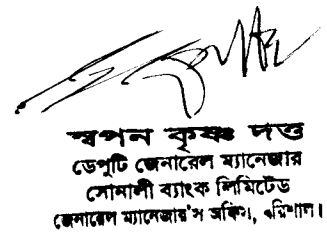 স্বপন কৃষ্ণ দত্ত
ডেপুটি জেনারেল ম্যানেজার
সোনালী ব্যাংক লিমিটেড
জেনারেল ম্যানেজার'স অফিস, বরিশাল।